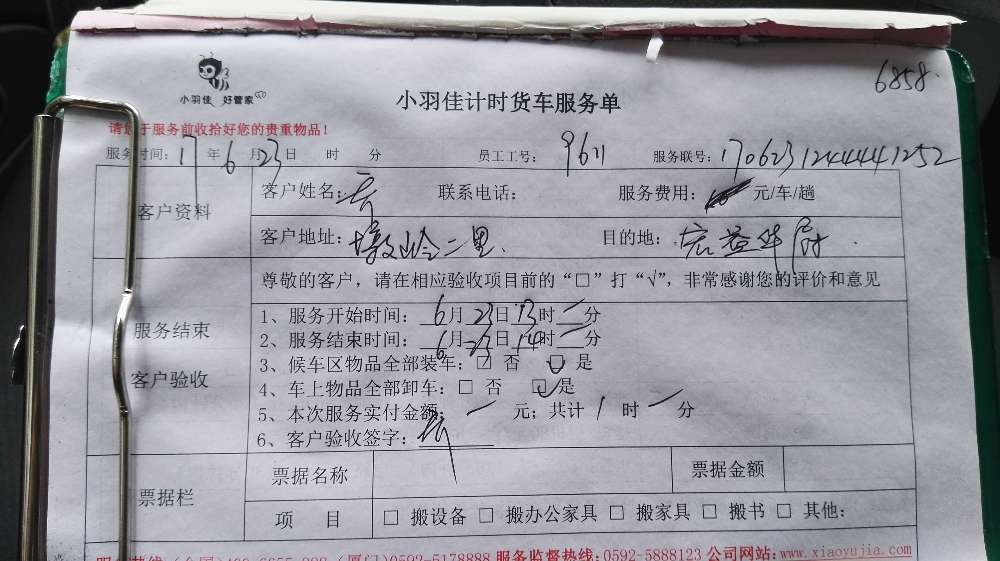 6858.
小羽佳 好管家
小羽佳计时货车服务单
请您于服务前收拾好您的贵重物品！
服务时间：17年6月23日 时 分 员工工号：9611 服务联号：17062312444441252
客户资料
客户姓名： 联系电话： 服务费用： 元/车/趟
客户地址：墩岭二里、 目的地：宏益华府.
尊敬的客户，请在相应验收项目前的“□”打“√”，非常感谢您的评价和意见
服务结束
客户验收
1、服务开始时间：6月23日13时一分
2、服务结束时间：6月23日14时一分
3、候车区物品全部装车：□ 否 □ 是
4、车上物品全部卸车：□ 否 □ 是
5、本次服务实付金额：一元；共计1时一分
6、客户验收签字：
票据栏
票据名称 票据金额
项 目 □ 搬设备 □ 搬办公家具 □ 搬家具 □ 搬书 □ 其他：
0592-5178888 服务监督热线：0592-5888123 公司网站：www.xiaoyujia.com